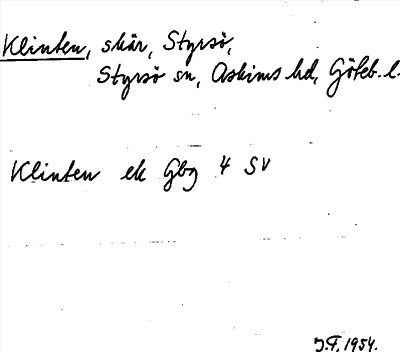 Klinten, skär, Styrsö,
Styrsö sn, Askims hd, Göteb. l.
Klinten ek Gbg 4 SV
J.F. 1954.